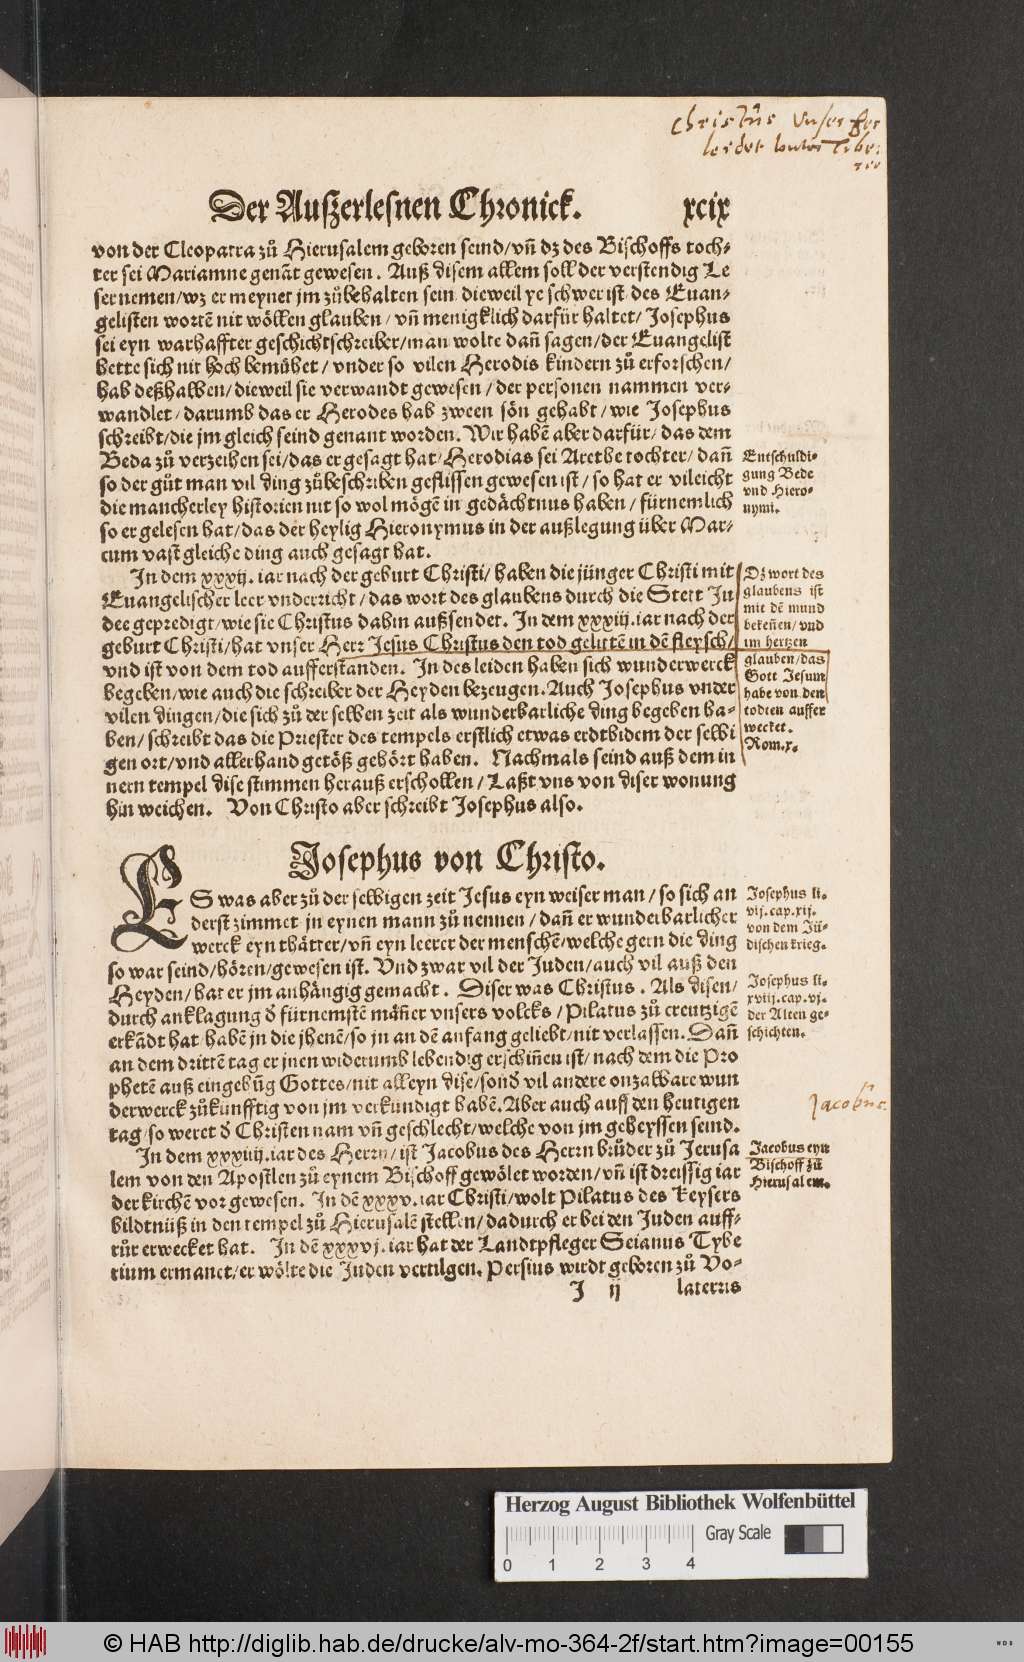 Christus Unser Her
leidet unter Tibe:
rio
Der Außerlesnen Chronick. xcix
von der Cleopatra zů Hierusalem geboren seind/vñ dz des Bischoffs toch⸗
ter sei Mariamne genãt gewesen. Auß disem allem soll der verstendig Le
ser nemen/wz er meynet jm zůbehalten sein dieweil ye schwer ist des Euan⸗
gelisten wortẽ nit wöllen glauben/vñ menigklich darfür haltet/Josephus
sei eyn warhaffter geschichtschreiber/man wolte dañ sagen/der Euangelist
hette sich nit hoch bemühet/vnder so vilen Herodis kindern zů erforschen/
hab deßhalben/dieweil sie verwandt gewesen/der personen nammen ver⸗
wandlet/darumb das er Herodes hab zween sön gehabt/wie Josephus
schreibt/die jm gleich seind genant worden. Wir habẽ aber darfür/das dem
Beda zů verzeihen sei/das er gesagt hat/Herodias sei Arethe tochter/dañ
so der gůt man vil ding zůbeschriben geflissen gewesen ist/so hat er vileicht
die mancherley historien nit so wol mögẽ in gedächtnus haben/fürnemlich
so er gelesen hat/das der heylig Hieronymus in der außlegung über Mar⸗
cum vast gleiche ding auch gesagt hat.
Entschuldi⸗
gung Bede
vnd Hiero⸗
nymi.
In dem xxxij. iar nach der geburt Christi/haben die jünger Christi mit
Euangelischer leer vnderricht/das wort des glaubens durch die Stett Ju
dee gepredigt/wie sie Christus dahin außsendet. In dem xxxiij. iar nach der
geburt Christi/hat vnser Herr Jesus Christus den tod gelittẽ in dẽ fleysch/
vnd ist von dem tod aufferstanden. In des leiden haben sich wunderwerck
begeben/wie auch die schreiber der Heyden bezeugen. Auch Josephus vnder
vilen dingen/die sich zů der selben zeit als wunderbarliche ding begeben ha⸗
ben/schreibt das die Priester des tempels erstlich etwas erdtbidem der selbi
gen ort/vnd allerhand getöß gehört haben. Nachmals seind auß dem in
nern tempel dise stimmen herauß erschollen/Laßt vns von diser wonung
hin weichen. Von Christo aber schreibt Josephus also.
Dz wort des
glaubens ist
mit dẽ mund
bekeñen/vnd
im hertzen
glauben/das
Gott Jesum
habe von den
todten auffer
wecket.
Rom.x.
Josephus von Christo.
ES was aber zů der selbigen zeit Jesus eyn weiser man/so sich an
derst zimmet jn eynen mann zů nennen/dañ er wunderbarlicher
werck eyn thätter/vñ eyn leerer der menschẽ/welche gern die ding
so war seind/hören/gewesen ist. Vnd zwar vil der Juden/auch vil auß den
Heyden/hat er jm anhängig gemacht. Diser was Christus. Als disen/
durch anklagung d̕ fürnemstẽ mäñer vnsers volcks/Pilatus zů creutzigẽ
erkãdt hat/habẽ jn die jhenẽ/so jn an dẽ anfang geliebt/nit verlassen. Dañ
an dem drittẽ tag er jnen widerumb lebendig erschiñen ist/nach dem die Pro
phetẽ auß eingebũg Gottes/nit alleyn dise/sond̕ vil andere onzalbare wun
derwerck zůkünfftig von jm verkündigt habẽ. Aber auch auff den heutigen
tag/so weret d̕ Christen nam vñ geschlecht/welche von jm geheyssen seind.
Josephus li.
vij. cap. xij.
von dem Jü⸗
dischen krieg.
Josephus li.
xviij. cap. vj.
der Alten ge⸗
schichten.
Jacobus.
In dem xxxiiij. iar des Herrn/ist Jacobus des Herrn brůder zů Jerusa
lem von den Apostlen zů eynem Bischoff gewölet worden/vñ ist dreissig iar
der kirchen vor gewesen. In dẽ xxxv. iar Christi/wolt Pilatus des Keysers
bildtnüß in den tempel zů Hierusalẽ stellen/dadurch er bei den Juden auff⸗
růr erwecket hat. In dẽ xxxvj. iar hat der Landtpfleger Seianus Tybe
rium ermanet/er wölte die Juden vertilgen. Persius wirdt geboren zů Vo⸗
Jacobus eyn
Bischoff zů
Hierusalem.
J ij laterris
Herzog August Bibliothek Wolfenbüttel
Gray Scale
0 1 2 3 4
© HAB http://diglib.hab.de/drucke/alv-mo-364-2f/start.htm?image=00155